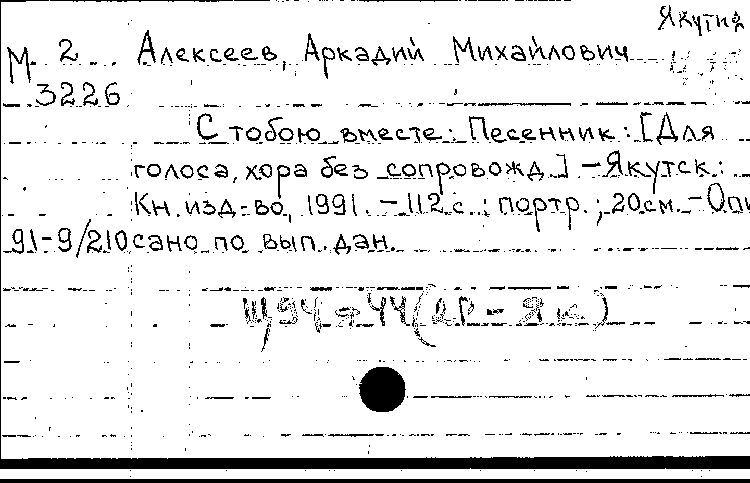 Якутия
М 2 Алексеев, Аркадий Михайлович
3226
С тобою вместе: Песенник: [Для
голоса, хора без сопровожд.] – Якутск:
Кн. изд-во, 1991. – 112 с.: портр.; 20см. – Опи
91-9/210 сано по вып. дан.
Щ94я44(2Р-Як)